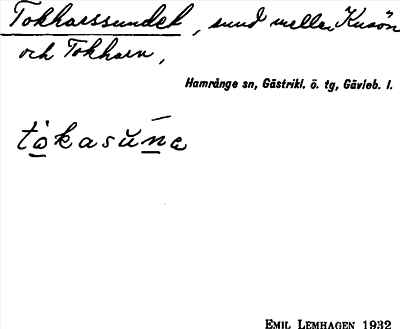 Tokharssundet, sund mellan Kusön
och Tokharn,
Hamrånge sn, Gästrikl. ö. tg, Gävleb. l.
tòkasúna
EMIL LEMHAGEN 1932